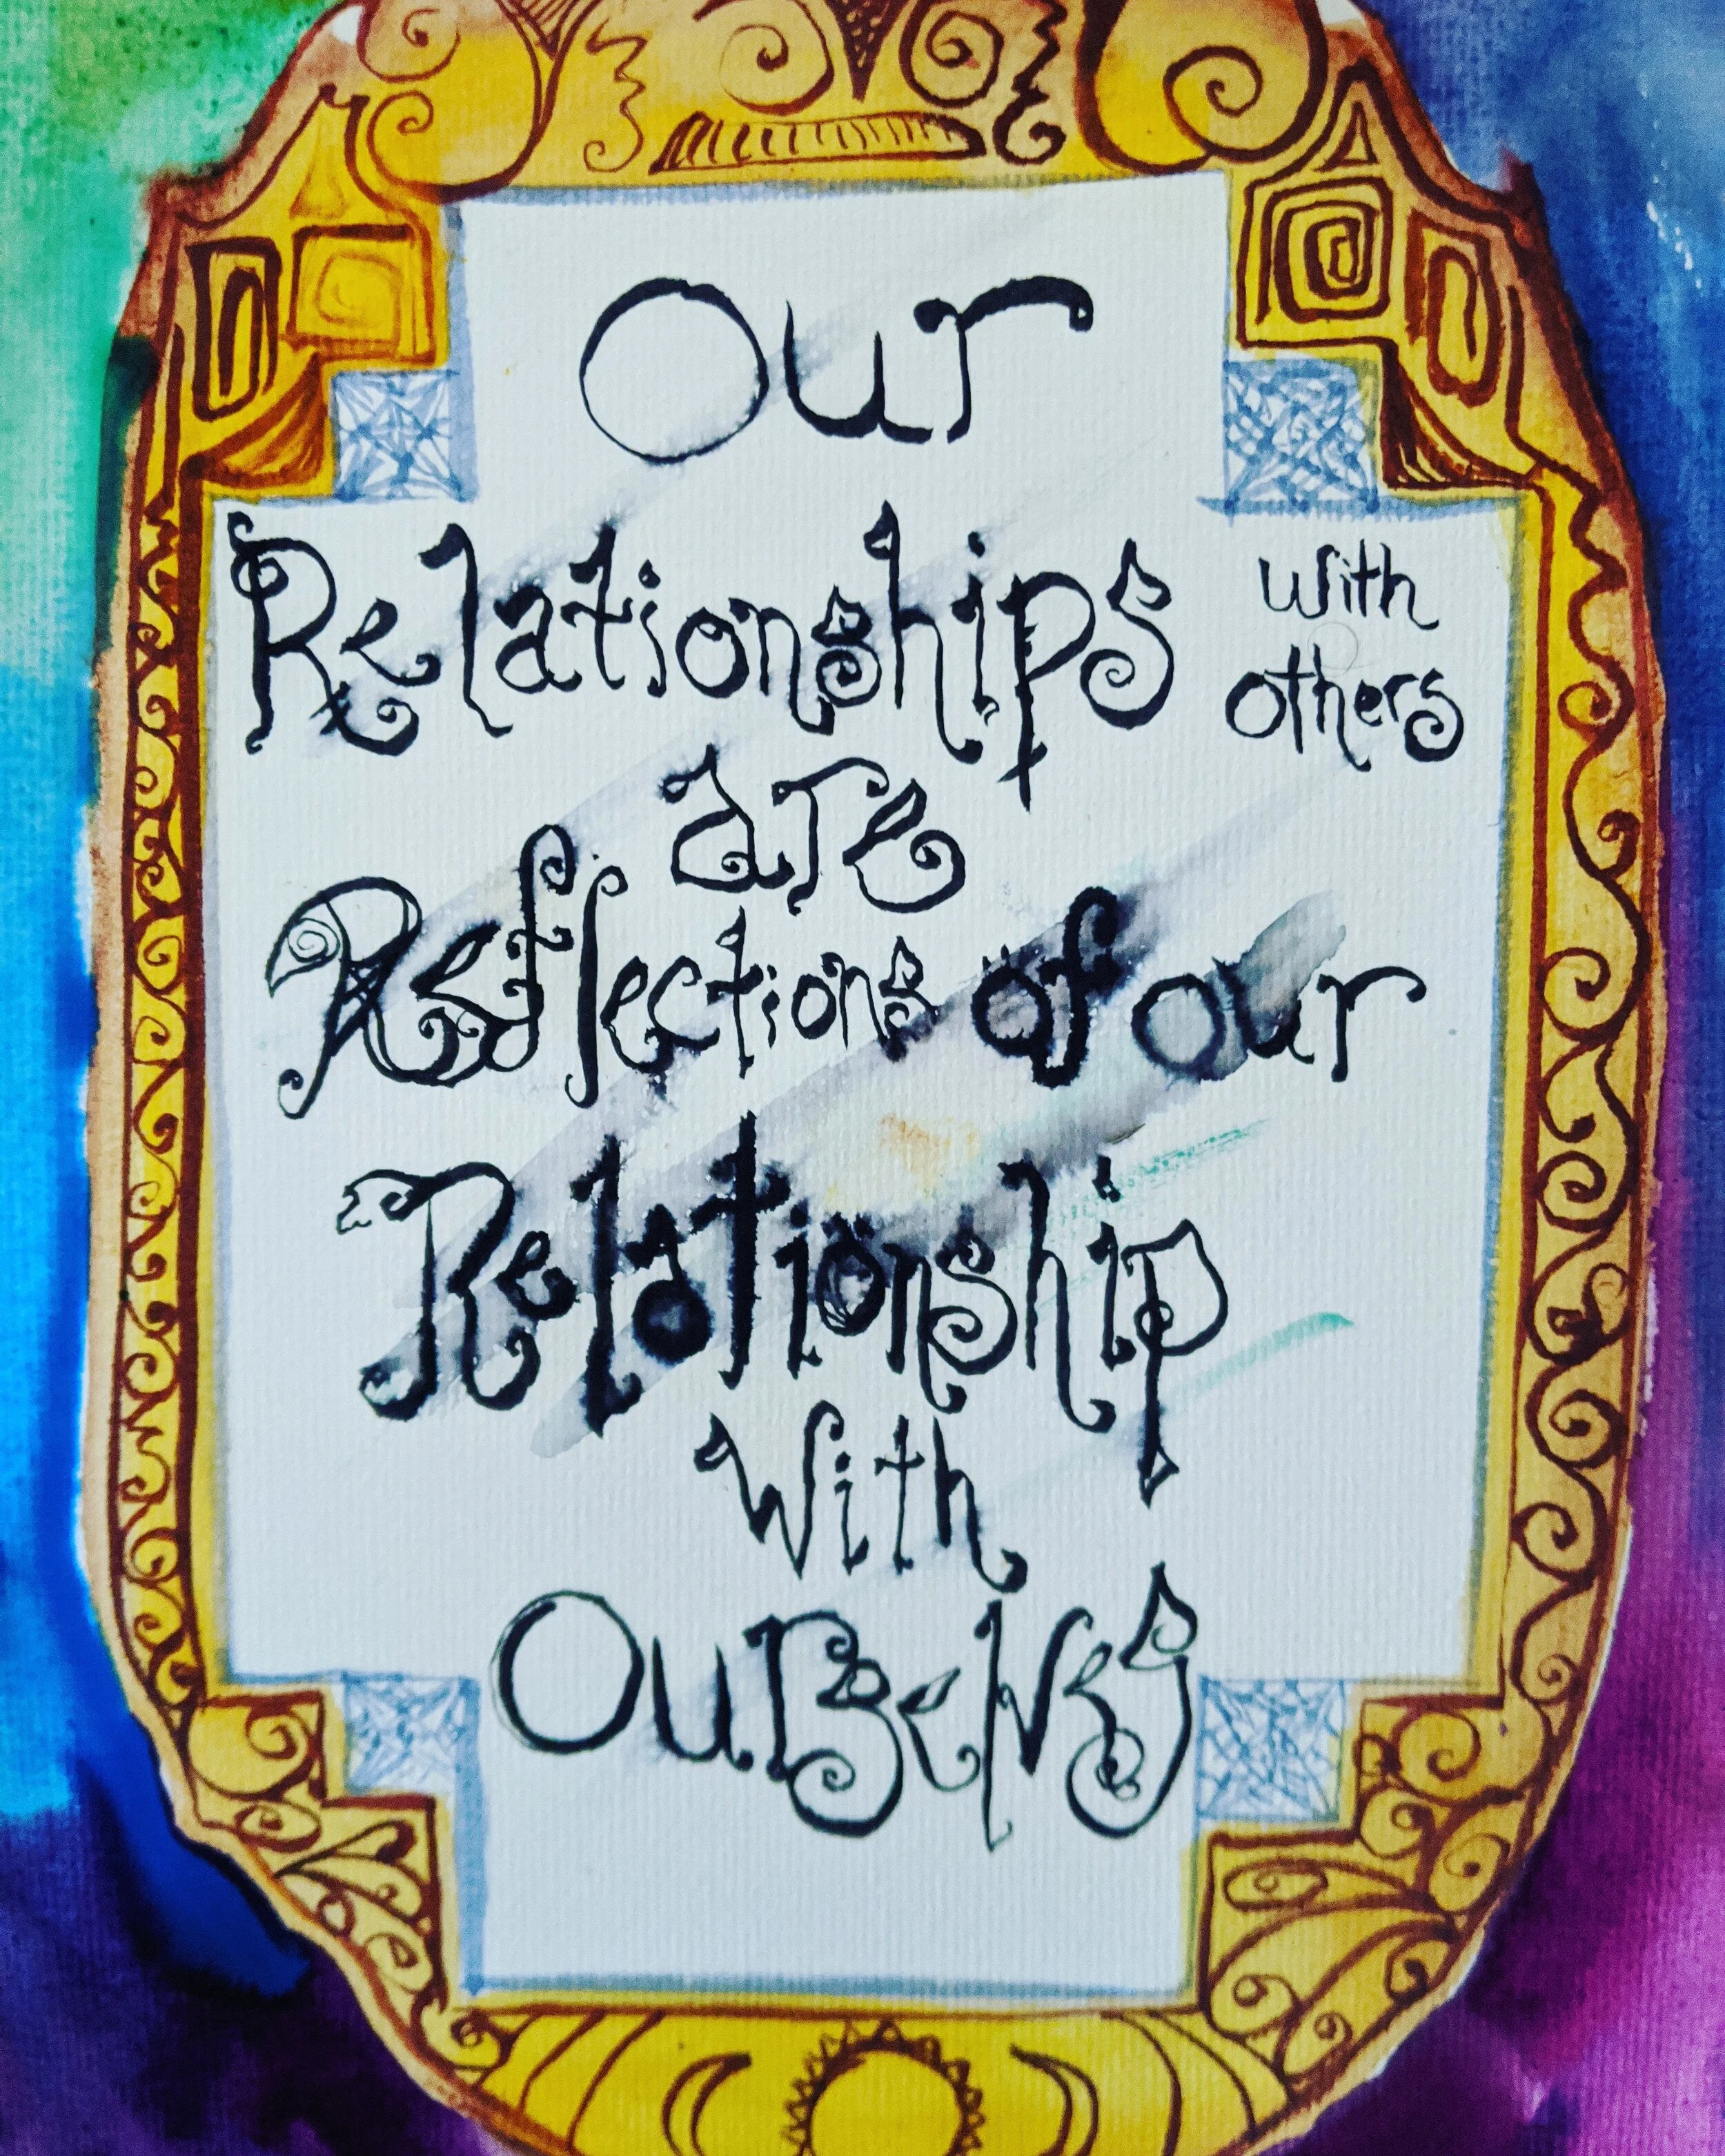 Our
Relationships with
others
are
Reflections of our
Relationship
With
Ourselves